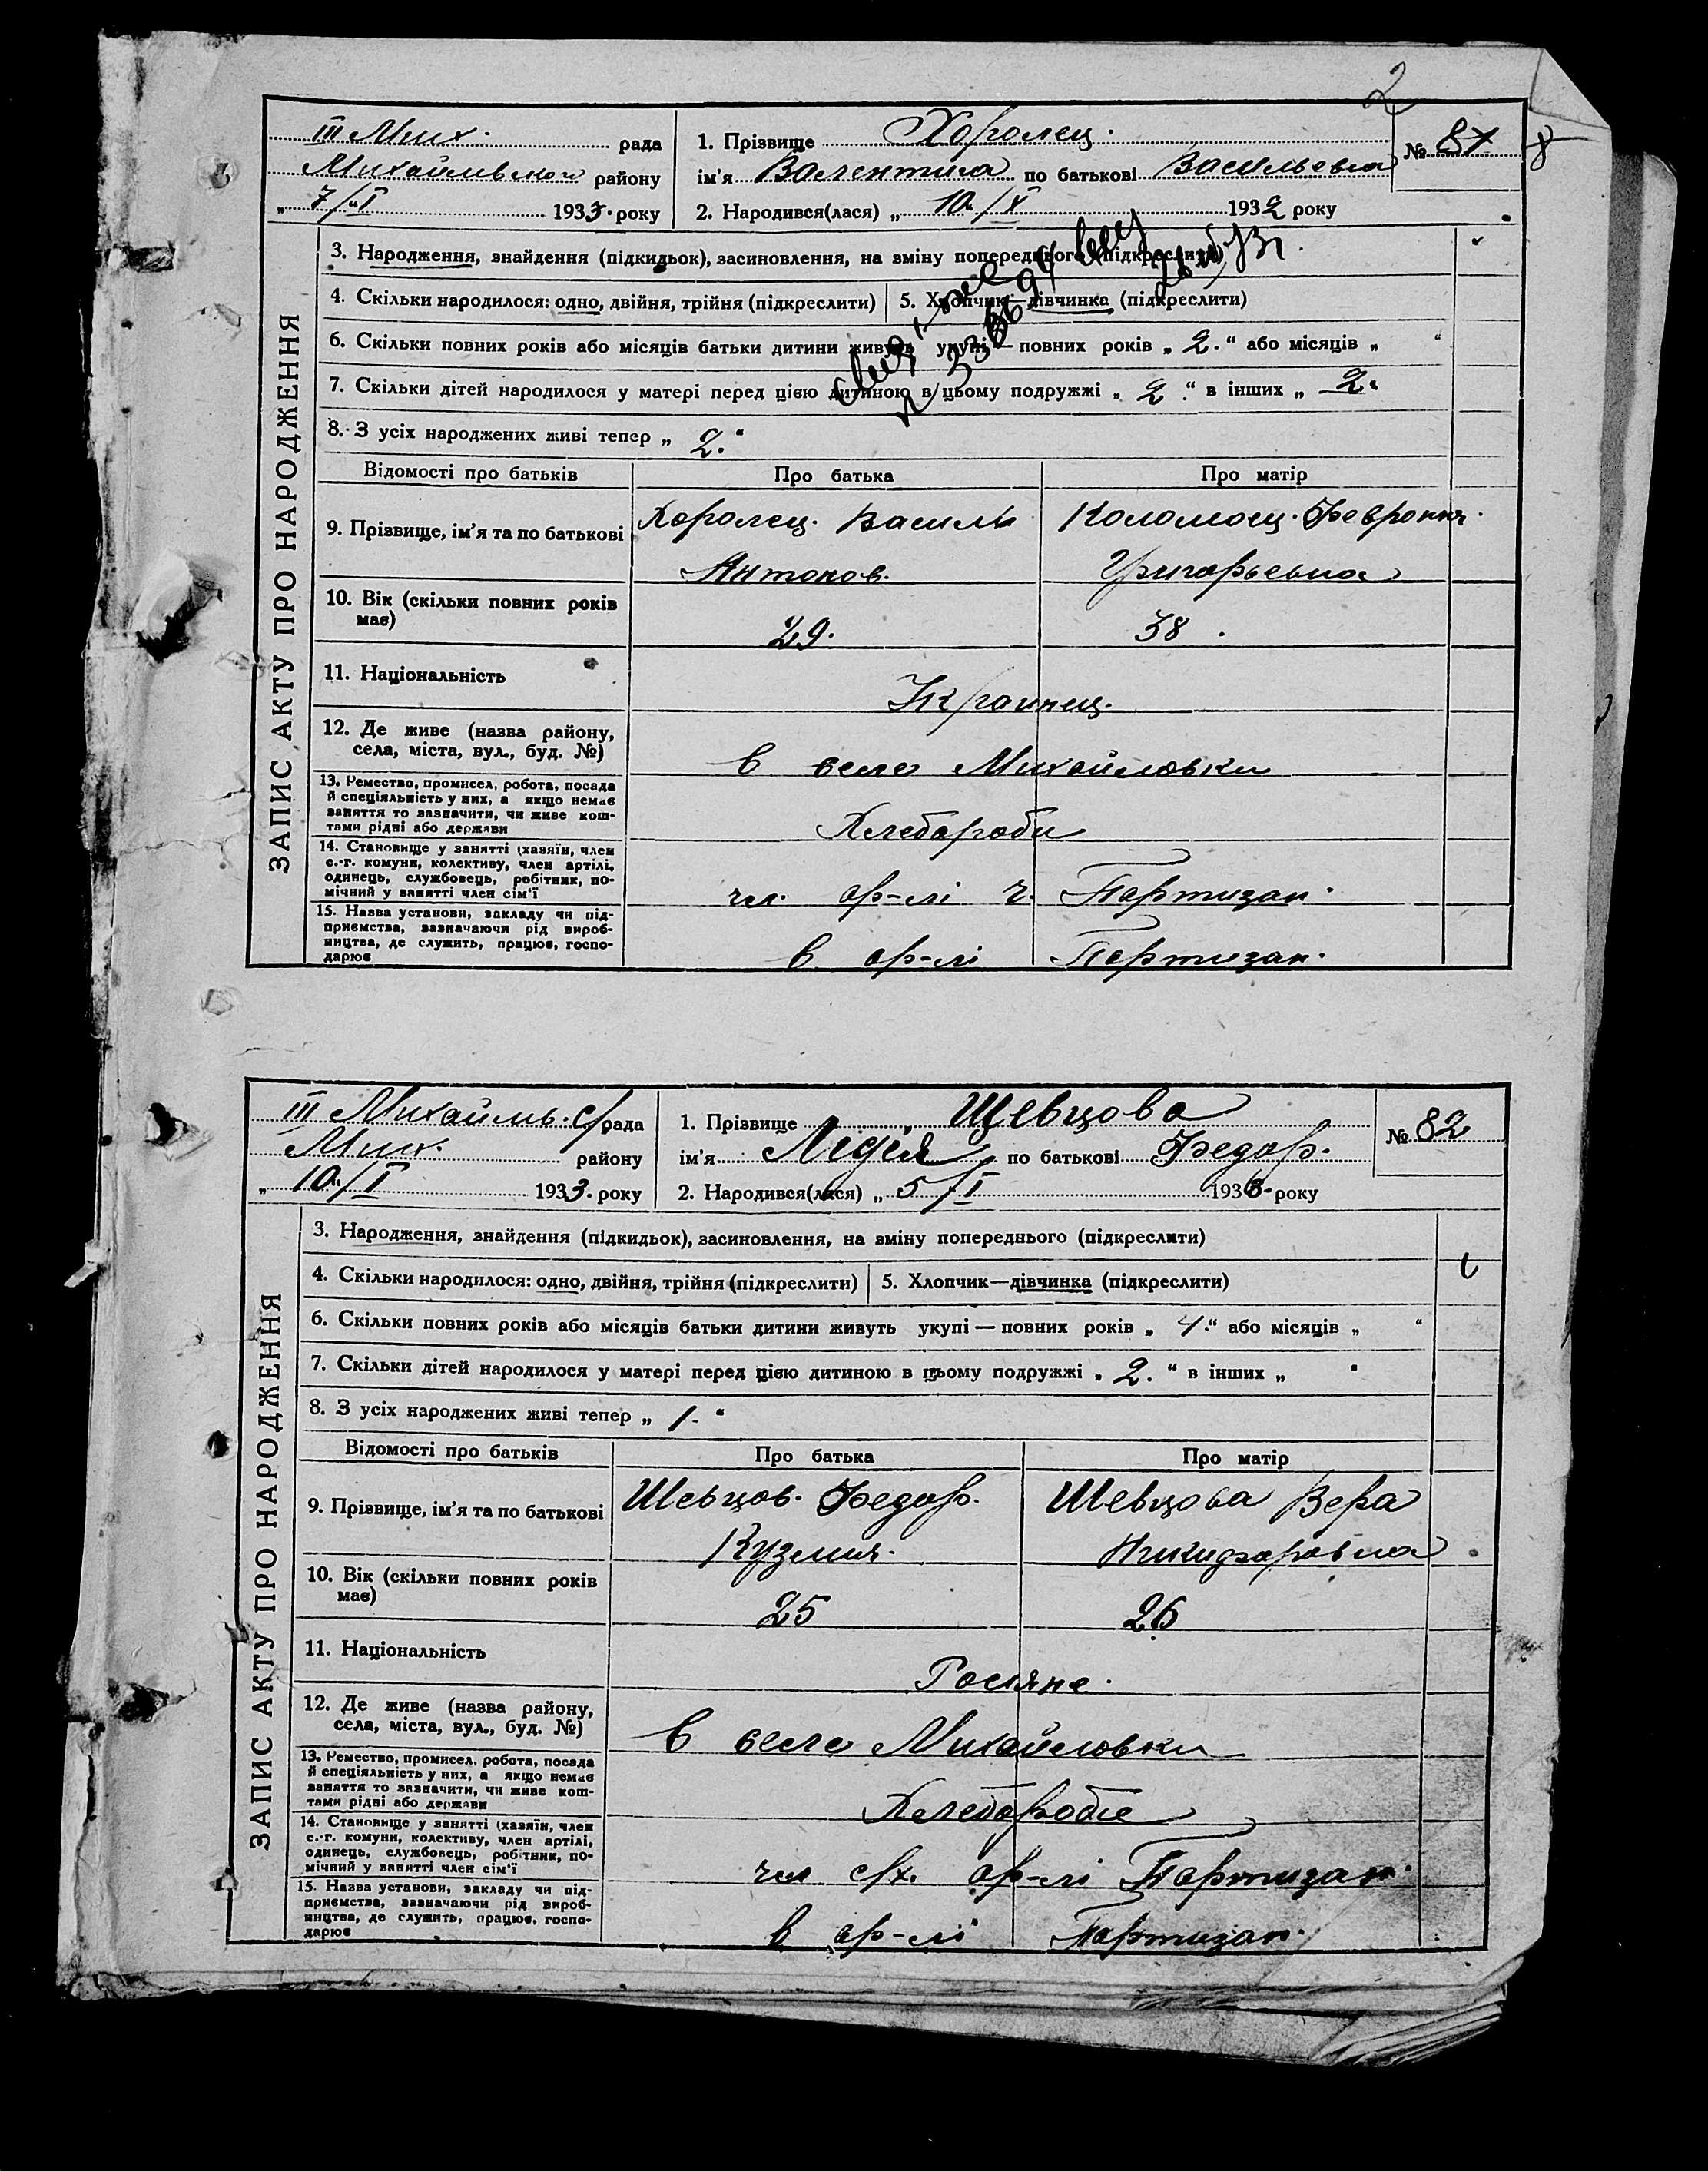 2
III Мих. рада
Михайлівского району
„ 7/I 1933. року
1. Прізвище Хоролец.
ім'я Валентина по батькові Васильевна
№ 81
2. Народився(лася) „ 10./X 1932 року
ЗАПИС АКТУ ПРО НАРОДЖЕННЯ
3. Народження, знайдення (підкидьок), засиновлення, на зміну попереднього (підкреслити)
4. Скільки народилося: одно, двійня, трійня (підкреслити)
5. Хлопчик—дівчинка (підкреслити)
6. Скільки повних років або місяців батьки дитини живуть укупі — повних років „ 2. “ або місяців „ “
7. Скільки дітей народилося у матері перед цією дитиною в цьому подружжі „ 2. “ в інших „ 2.
8. З усіх народжених живі тепер „ 2. “
Відомості про батьків
Про батька
Про матір
9. Прізвище, ім'я та по батькові
Хоролец. Василь
Антонов.
Коломоец. Феврония.
Григорьевна
10. Вік (скільки повних років
має)
29.
38.
11. Національність
Украинец.
12. Де живе (назва району,
села, міста, вул., буд. №)
в селе Михайловки
13. Ремество, промисел, робота, посада
й спеціяльність у них, а якщо немає
заняття то зазначити, чи живе кош-
тами рідні або держави
Хлебороби
14. Становище у занятті (хазяїн, член
с.-г. комуни, колективу, член артілі,
одинець, службовець, робітник, по-
мічний у занятті член сім'ї
чл. ар-лі ч. Партизан.
15. Назва установи, закладу чи під-
приємства, зазначаючи рід вироб-
ництва, де служить, працює, госпо-
дарює
в ар-лі Партизан.
III Михайль. с/рада
Мих. району
„ 10./I 1933. року
1. Прізвище Шевцова
ім'я Лідія по батькові Федор.
№ 82
2. Народився(лася) „ 5/I 1933. року
ЗАПИС АКТУ ПРО НАРОДЖЕННЯ
3. Народження, знайдення (підкидьок), засиновлення, на зміну попереднього (підкреслити)
4. Скільки народилося: одно, двійня, трійня (підкреслити)
5. Хлопчик—дівчинка (підкреслити)
6. Скільки повних років або місяців батьки дитини живуть укупі — повних років „ 4. “ або місяців „ “
7. Скільки дітей народилося у матері перед цією дитиною в цьому подружжі „ 2. “ в інших „ “
8. З усіх народжених живі тепер „ 1. “
Відомості про батьків
Про батька
Про матір
9. Прізвище, ім'я та по батькові
Шевцов. Федор.
Кузмич.
Шевцова Вера
Никифоровна
10. Вік (скільки повних років
має)
25
26
11. Національність
Росіяне.
12. Де живе (назва району,
села, міста, вул., буд. №)
в селе Михайловки
13. Ремество, промисел, робота, посада
й спеціяльність у них, а якщо немає
заняття то зазначити, чи живе кош-
тами рідні або держави
Хлебороби
14. Становище у занятті (хазяїн, член
с.-г. комуни, колективу, член артілі,
одинець, службовець, робітник, по-
мічний у занятті член сім'ї
чл с/х. ар-лі Партизан.
15. Назва установи, закладу чи під-
приємства, зазначаючи рід вироб-
ництва, де служить, працює, госпо-
дарює
в ар-лі Партизан.